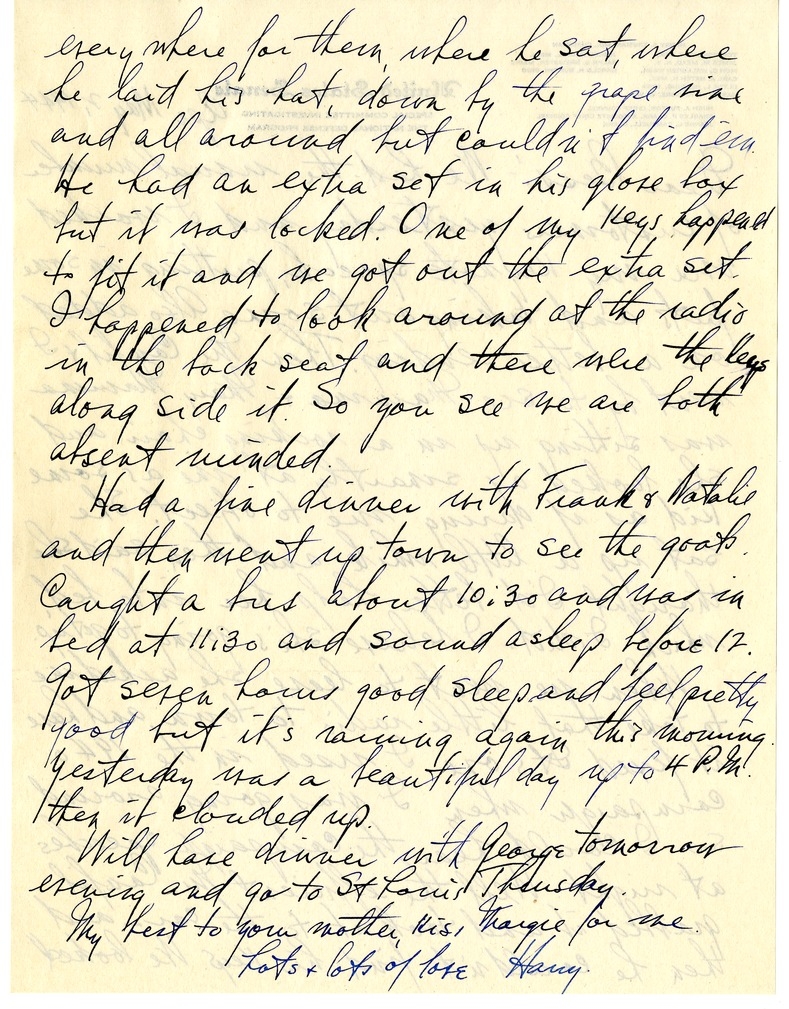 everywhere for them, where he sat, where
he laid his hat, down by the grape vine
and all around but couldn't find em.
He had an extra set in his glove box
but it was locked. One of my keys happened
to fit it and we got out the extra set.
I happened to look around at the radio
in the back seat and there were the keys
along side it. So you see we are both
absent minded.
Had a fine dinner with Frank & Natalie
and then went up town to see the goats.
Caught a bus about 10:30 and was in
bed at 11:30 and sound asleep before 12.
Got seven hours good sleep and feel pretty
good but it's raining again this morning.
Yesterday was a beautiful day up to 4 P.M.
then it clouded up.
Will have dinner with George tomorrow
evening and go to St Louis Thursday.
My best to your mother, Kiss Margie for me.
Lots & lots of love Harry.